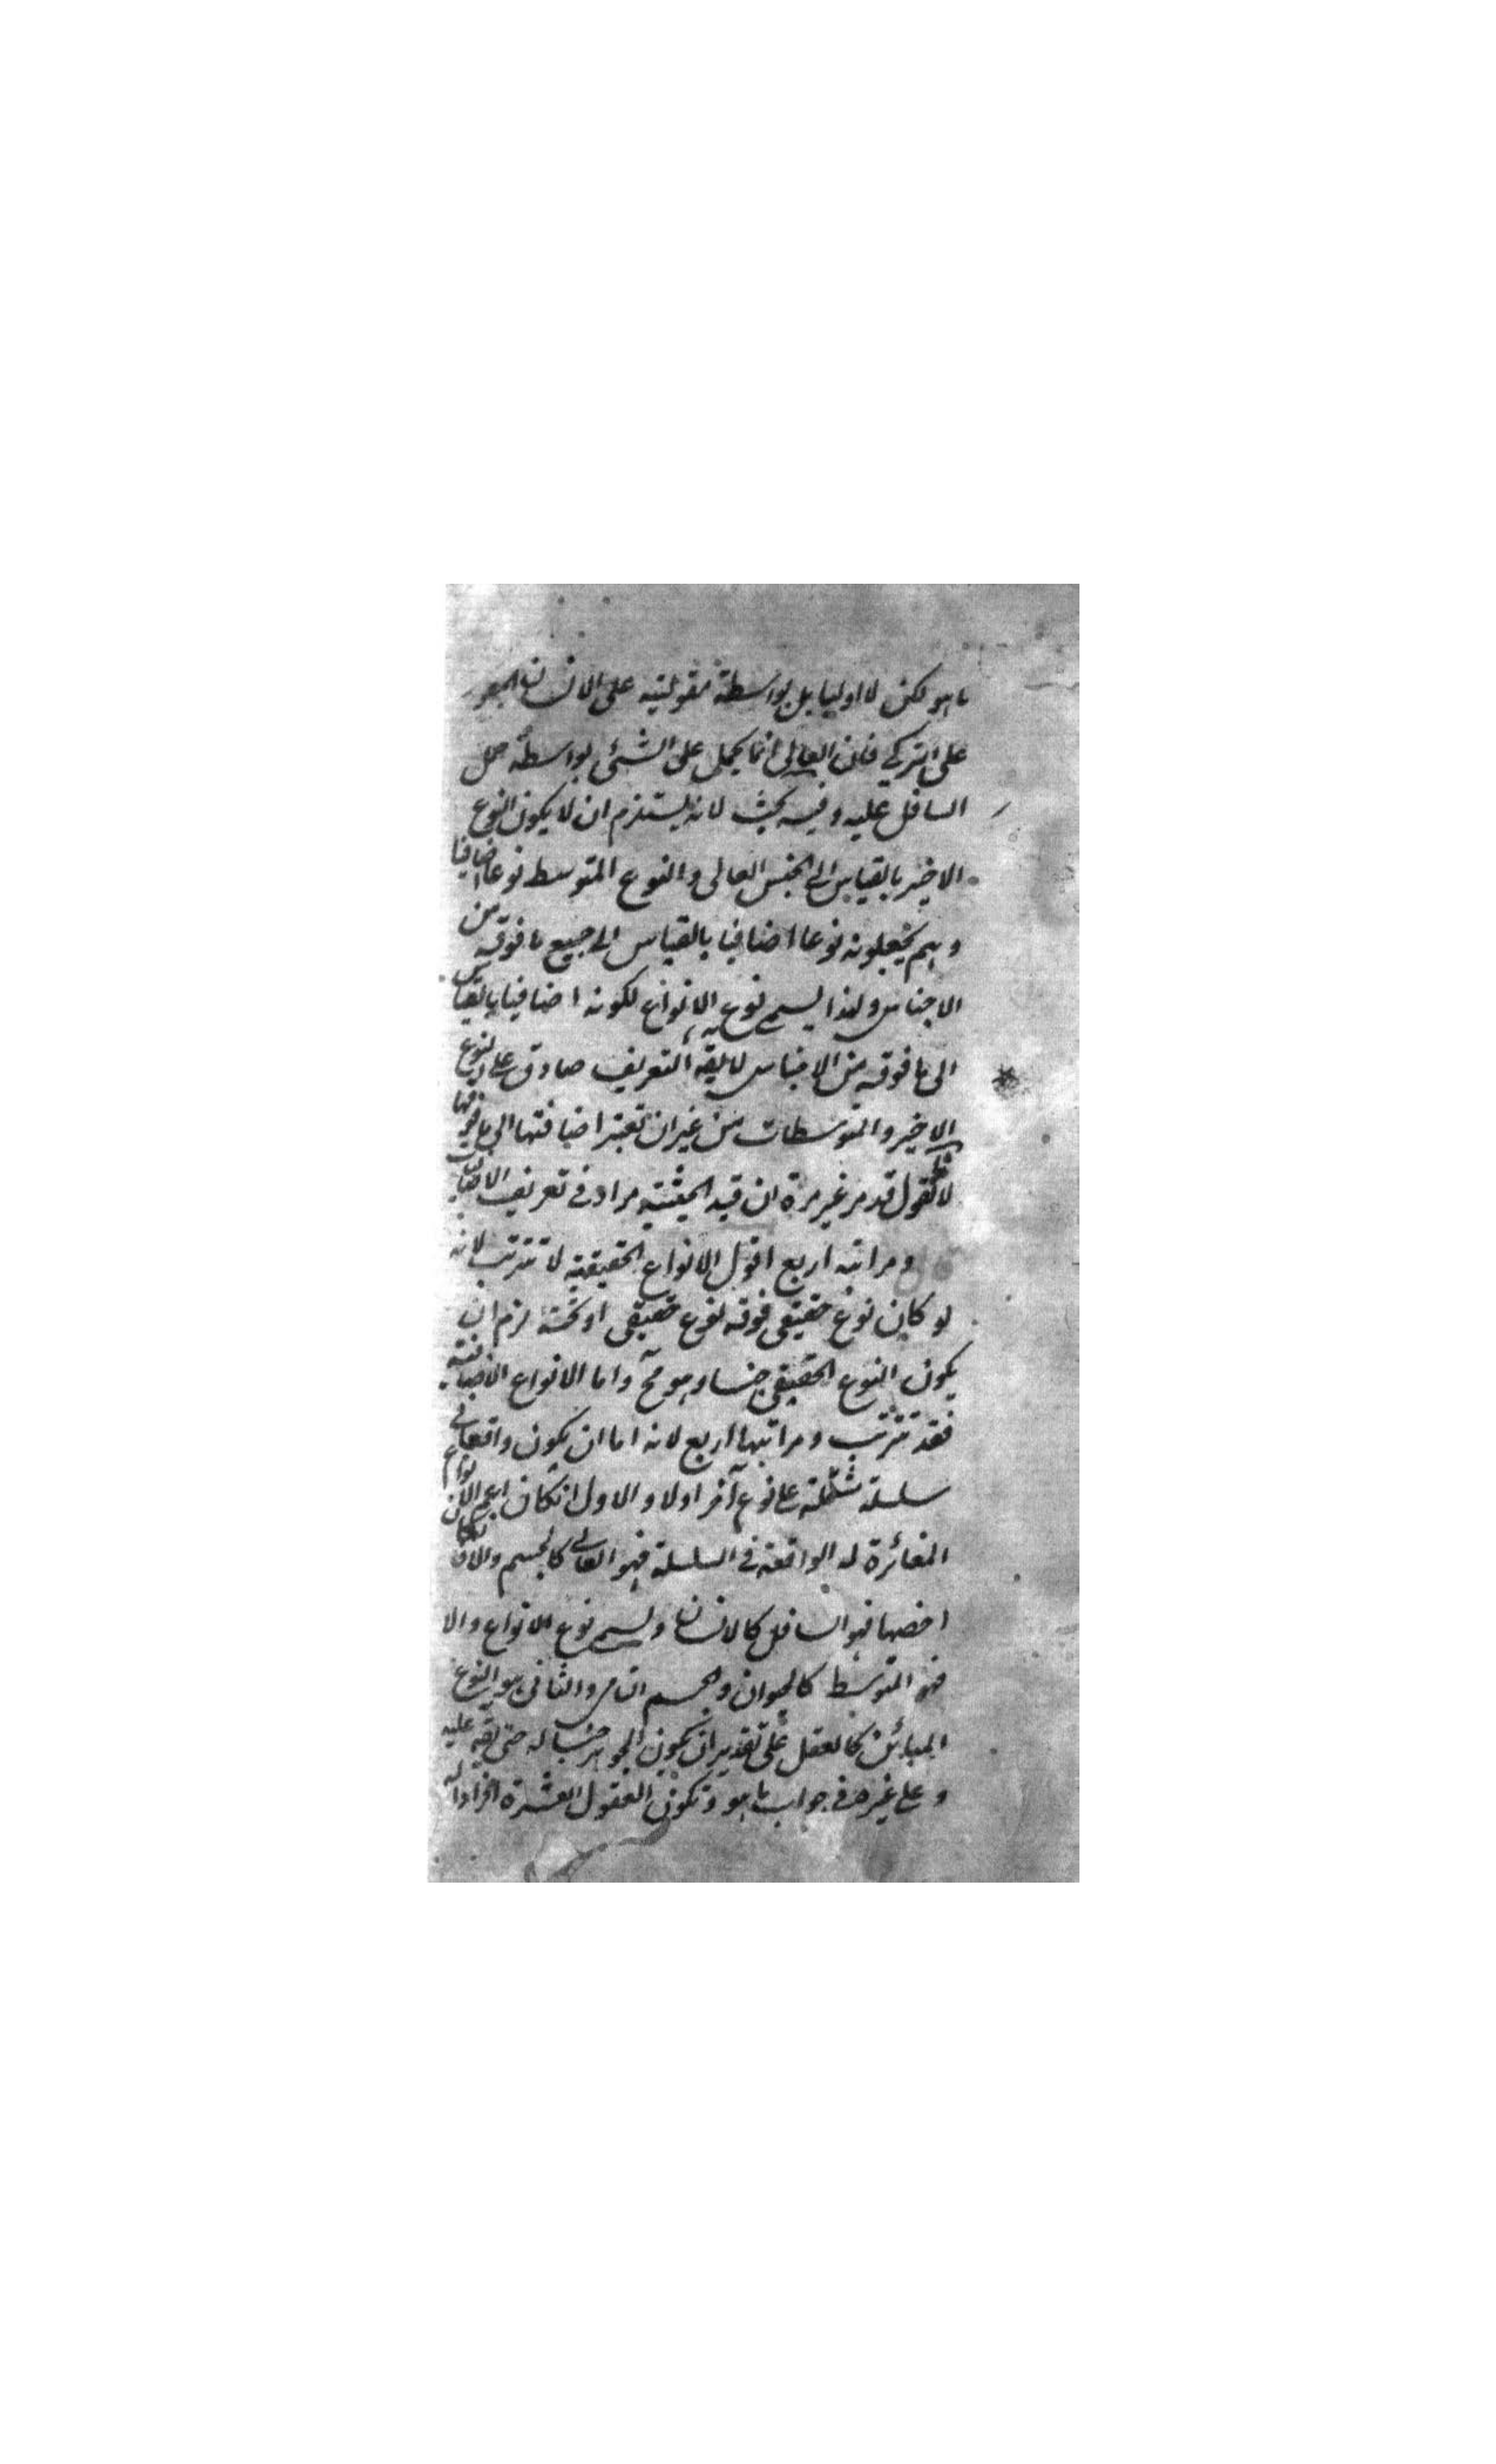 ما هو لكن لا اوليا بل بواسطة مقوليته على الانسان المحمول
على التركي فان العالي انما يحمل على الشئ بواسطة حمل
السافل عليه وفيه بحث لانه يستلزم ان لا يكون النوع
الاخير بالقياس الى الجنس العالى والنوع المتوسط نوعا اضافيا
وهم يجعلونه نوعا اضافيا بالقياس الى جميع ما فوقه من
الاجناس ولهذا يسمى نوع الانواع لكونه اضافيا بالقياس
الى ما فوقه من الاجناس لا يقه التعريف صادق على النوع
الاخير والمتوسطات من غير ان تعتبر اضافتها الى ما فوقها
لانا نقول قد مر غير مرة ان قيد الحيثية مراد فى تعريف الاضافيات
ومراتبه اربع اقول الانواع الحقيقية لا تترتب لانه
لو كان نوع حقيقى فوقه نوع حقيقى او تحته لزم ان
يكون النوع الحقيقى جنسا وهو مح واما الانواع الاضافية
فقد تترتب ومراتبها اربع لانه اما ان يكون واقعا فى
سلسلة مشتملة على نوع آخر او لا والاول ان كان اعم الانواع
المغائرة له الواقعة فى السلسلة فهو العالى كالجسم وان كان
اخصها فهو السافل كالانسان ويسمى نوع الانواع والا
فهو المتوسط كالحيوان والجسم النامى والثانى هو النوع
المبائن كالعقل على تقدير ان يكون الجوهر جنسا له حتى يقه عليه
وعلى غيره فى جواب ما هو وتكون العقول العشرة افرادا له